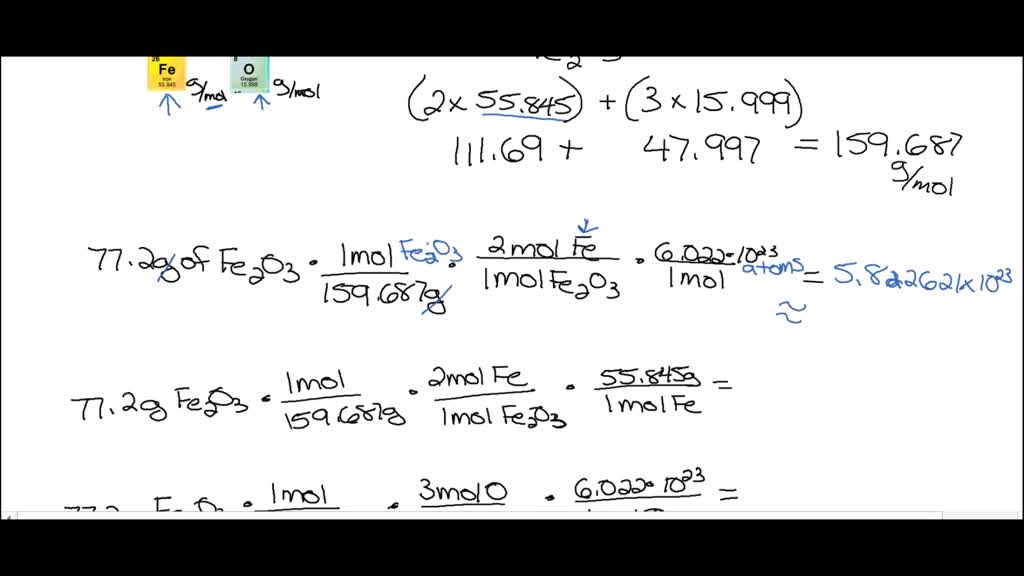 26 8
Fe O
Iron Oxygen
55.845 15.999
g/mol g/mol
(2 x 55.845) + (3 x 15.999)
111.69 + 47.997 = 159.687
g/mol
77.2g of Fe2O3 · 1mol Fe2O3 / 159.687g · 2mol Fe / 1mol Fe2O3 · 6.022·10^23 atoms / 1mol = 5.822621x10^23
≈
77.2g Fe2O3 · 1mol / 159.687g · 2mol Fe / 1mol Fe2O3 · 55.845g / 1mol Fe =
1mol · 3mol O · 6.022·10^23 =